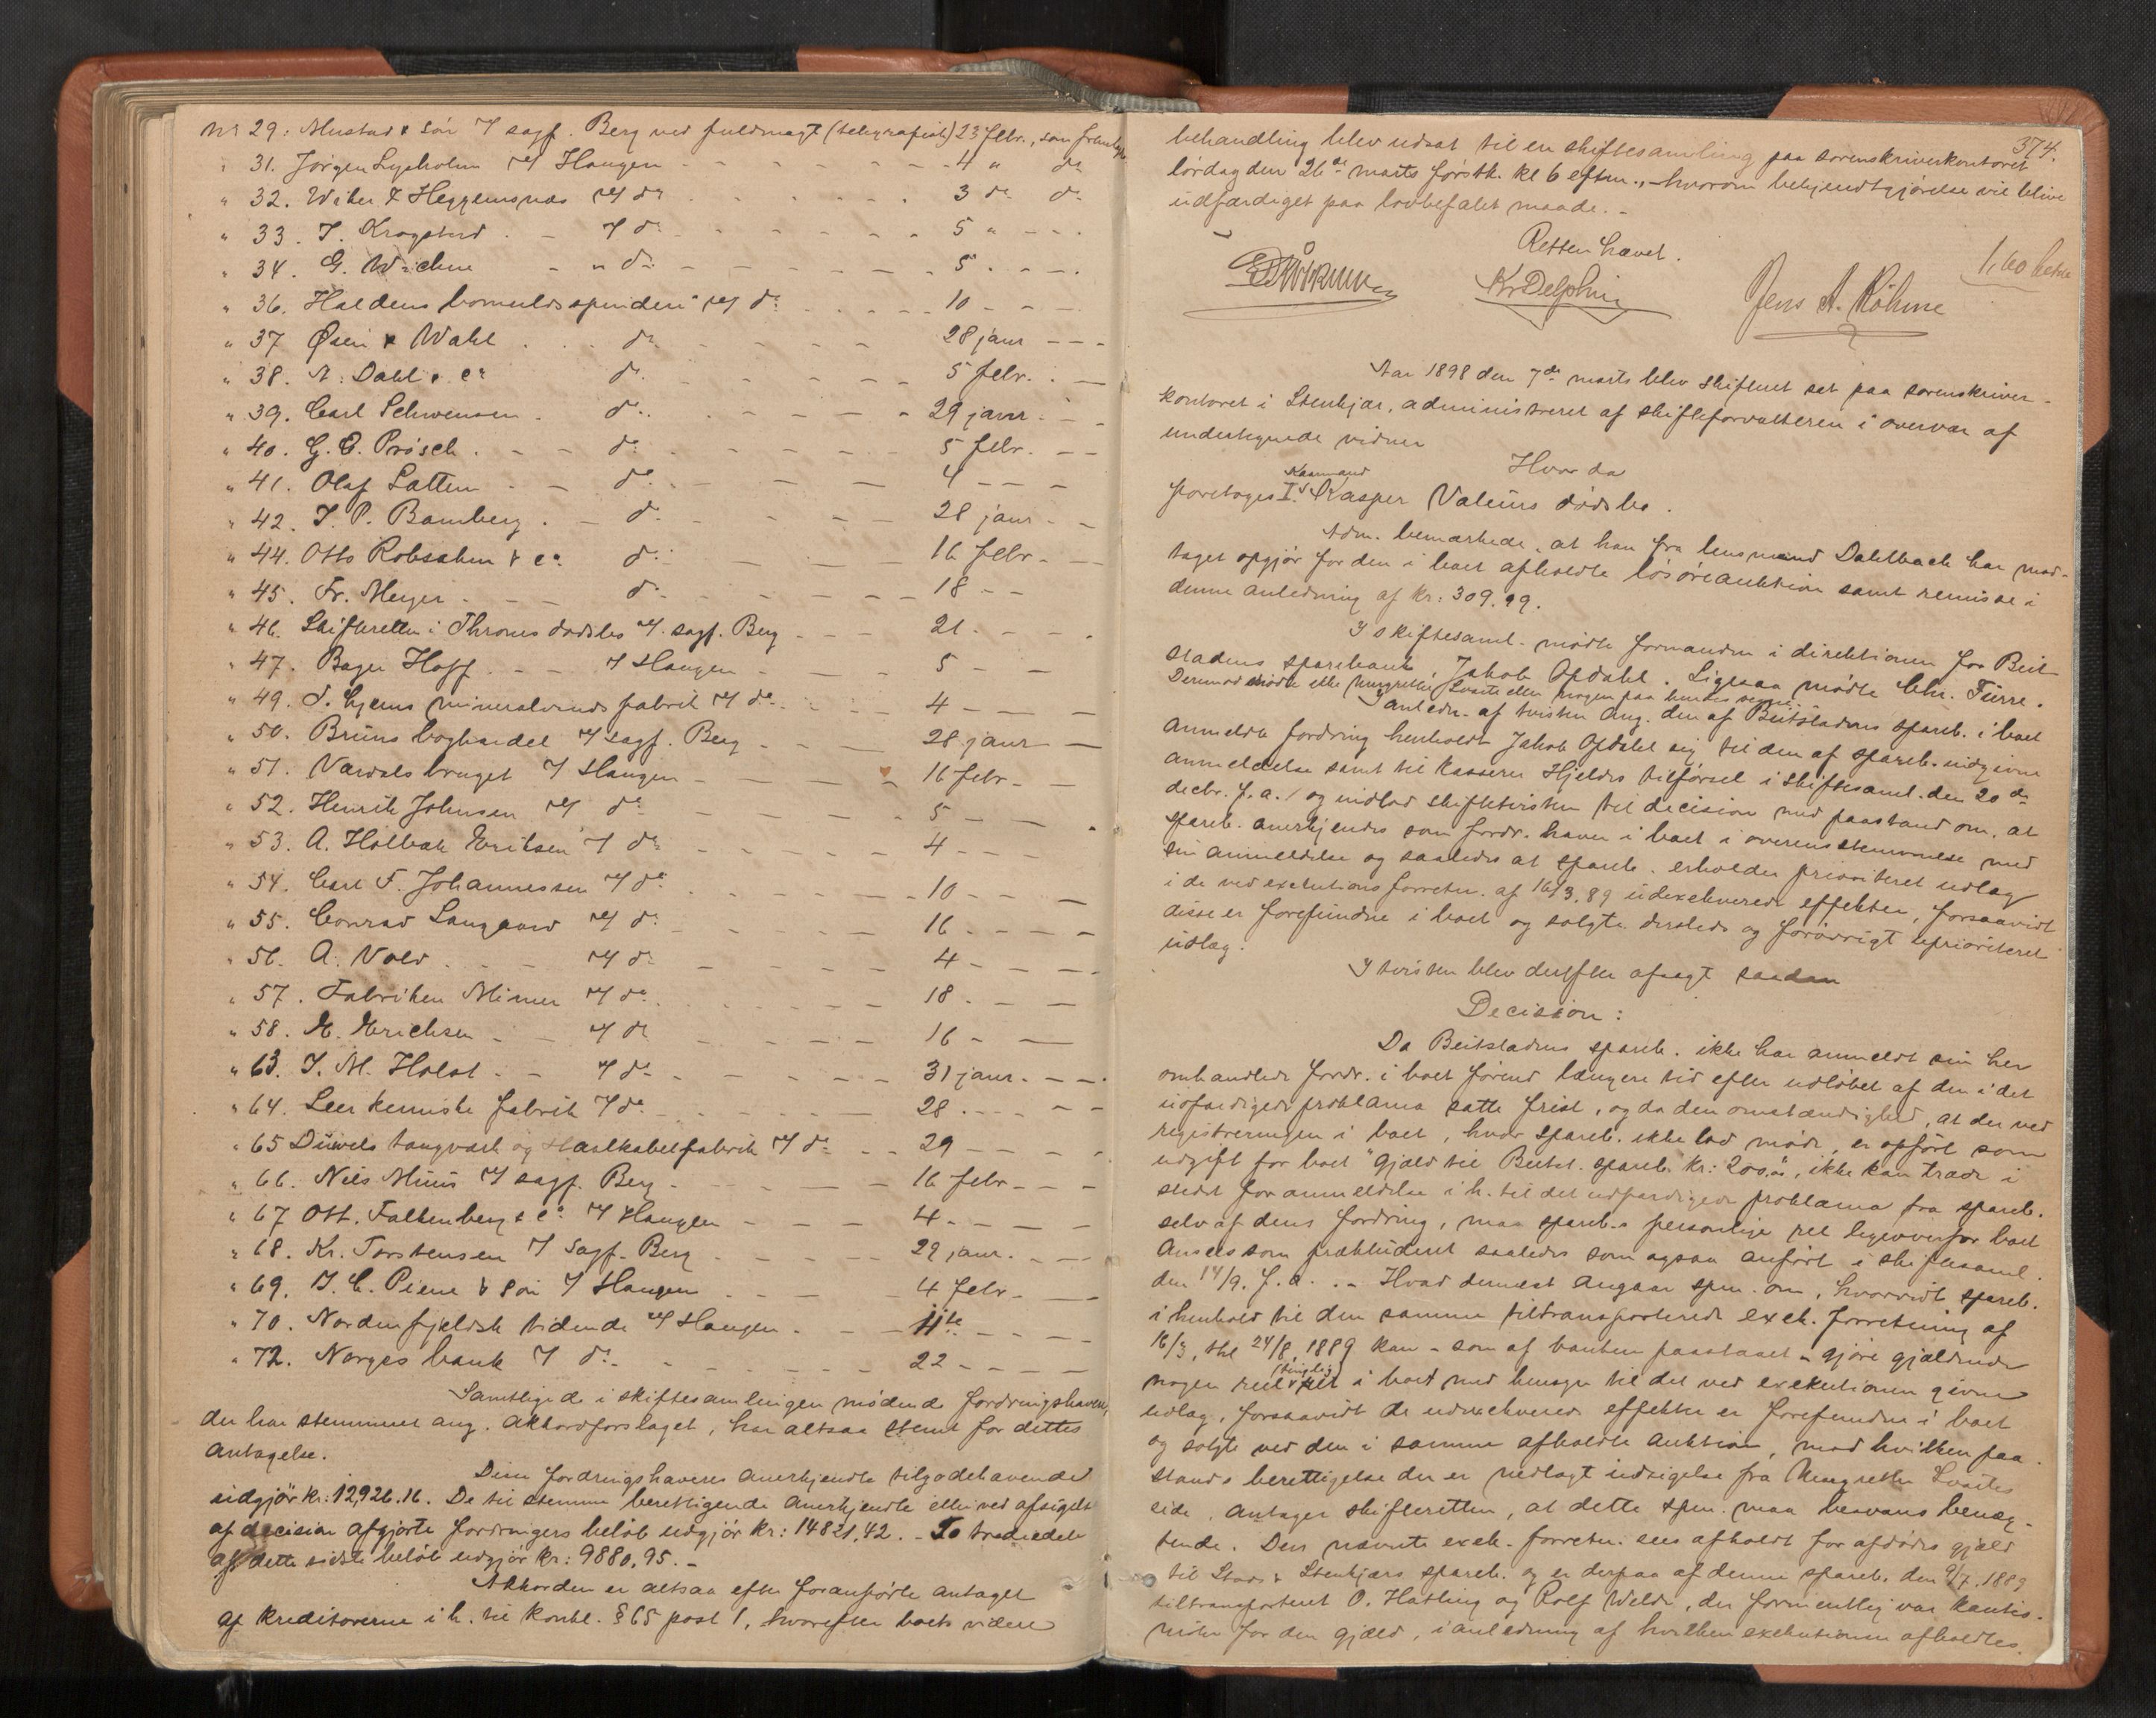 Nr 29: Mustad & søn v/ sagf. Berg ved fuldmagt (telegrafisk) 23 febr., som fremlagt
" 31. Jørgen Lysholm v/ Haugen - - - 4 " do
" 32. Wiker & Heggemsnæs v/ do - - - 3 do do
" 33. J. Krogstad - v/ do - - - 5 " - - -
" 34. G. Wichne - " do - - - 5 - - -
" 36. Haldens bomuldsspinderi v/ do - - - 10 - - -
" 37 Øsen & Wahl - do - - - 28 janr - - -
" 38. A. Dahl & Co do - - - 5 febr. - -
" 39. Carl Schwensen do - - - 29 janr - -
" 40. G. E. Prösch - - do - - - 5 febr. - -
" 41. Olaf Sattem - - do - - - 4 - - -
" 42. J. P. Bamberg - do - - - 28 janr - -
" 44. Otto Robsahm & Co do - - - 16 febr - -
" 45. Fr. Meyer - - do - - - 18 - -
" 46. Skifteretten i Thrones dødsbo v/ sagf. Berg - - - 21 - - -
" 47. Bager Hoff - - v/ Haugen - - - 5 - -
" 49. S. Gjerns mineralvands fabrik v/ do - - - 4 - - -
" 50. Bruns boghandel v/ sagf. Berg - - - 28 janr -
" 51. Værdalsbruget v/ Haugen - - - 16 febr - -
" 52. Henrik Johnsen v/ do - - - 5 - - -
" 53. A. Holbæk Eriksen v/ do - - - 4 - - -
" 54. Carl F. Johannessen v/ do - - - 10 - - -
" 55. Conrad Langaard v/ do - - - 16 - - -
" 56. A. Vold - - v/ do - - - 4 - - -
" 57. Fabriken Mimer v/ do - - - 18 - - -
" 58. M. Erichsen - - v/ do - - - 16 - -
" 63. J. M. Holst - - v/ do - - - 31 janr. - -
" 64. Leer kemiske fabrik v/ do - - - 28 - - -
" 65 Düwels tougværk og Staalkabelfabrik v/ do - - 29 - - -
" 66. Nils Muus v/ sagf. Berg - - - 16 febr - - -
" 67 Ott. Falkenberg & Co v/ Haugen - - - 4 - - -
" 68. Kr. Torstensen v/ sagf. Berg - - - 29 janr. - -
" 69. I. C. Piene & søn v/ Haugen - - - 4 febr - -
" 70. Nordenfjeldsk tidende v/ Haugen - - 11te - - -
" 72. Norges bank v/ do - - - 22 - - -
Samtlige de i skiftesamlingen mødende fordringshavere,
der har stemmeret ang. akkordforslaget, har altsaa stemt for dettes
antagelse.
Disse fordringshaveres anerkjendte tilgodehavende
udgjør kr: 12,926.16. De til stemme berettigende anerkjendte eller ved afsigelse
af decision afgjorte fordringers beløb udgjør kr: 14821,42. - To trediedele
af dette sidste beløb udgjør kr: 9880,95. -
Akkorden er altsaa efter foranførte antaget
af kreditorerne i h. til konkl. § 65 post 1, hvorefter boets videre
374.
behandling blev udsat til en skiftesamling paa sorenskriverkontoret
lørdag den 26de marts førstk. kl 6 eftm., hvorom bekjendtgjørelse vil blive
udfærdiget paa lovbefalet maade. -
Retten hævet.
1,60 betalt
Kr Delphin
Jens A. Røhme
Aar 1898 den 7de marts blev skifteret sat paa sorenskriver-
kontoret i Stenkjær, administreret af skifteforvalteren i overvær af
undertegnede vidner
Hvor da
Kaarmand
foretoges I. Kasper Valøens dødsbo.
Adm. bemærkede, at han fra lensmand Dahlback har mod-
taget opgjør for den i boet afholdte løsøreauktion samt remisse i
denne anledning af kr: 309.99.
I skiftesaml. mødte formanden i direktionen for Beit-
stadens sparebank, Jakob Opdahl. Ligesaa mødte Chr. Fürre.
Derimod mødte ikke Margrethe Svarte eller nogen paa hendes vegne.
I anledn. af tvisten ang. den af Beitstadens spareb. i boet
anmeldte fordring henholdt Jakob Opdahl sig til den af spareb. indgivne
anmeldelse samt til kasserer Hjeldes tilførsel i skiftesaml. den 20de
decbr. f. a. og indlod skiftetvisten til decision med paastand om, at
spareb. anerkjendes som fordr. haver i boet i overensstemmelse med
sin anmeldelse og saaledes at spareb. erholder prioriteret udlæg
i de ved exekutionsforretn. af 16/3.89 udexekverede effekter, forsaavidt
disse er forefundne i boet og solgte dersteds og forøvrigt uprioriteret
udlæg.
I tvisten blev derefter afsagt saadan
Decision:
Da Beitstadens spareb. ikke har anmeldt sin her
omhandlede fordr. i boet førend længere tid efter udløbet af den i det
udfærdigede proklama satte frist, og da den omstændighed, at der ved
registreringen i boet, hvor spareb. ikke lod møde, er opført som
udgift for boet "gjæld til Beitst. spareb. kr: 200,00, ikke kan træde i
stedet for anmeldelse i h. til det udfærdigede proklama fra spareb.
selv af dens fordring, maa spareb.s personlige ret ligeoverfor boet
ansees som prækluderet saaledes som ogsaa anført i skiftesaml.
den 14/9. f. a. - Hvad dernæst angaar spm. om, hvorvidt spareb.
i henhold til den samme tiltransporterede exek. forretning af
16/3, thl 24/8, 1889 kan - som af banken paastaaet - gjøre gjældende
nogen reel (tinglig) ret i boet med hensyn til det ved exekutionen givne
udlæg, forsaavidt de udexekverede effekter er forefundne i boet
og solgte ved den i samme afholdte auktion, mod hvilken paa-
stands berettigelse der er nedlagt indsigelse fra Margrethe Svartes
side, antager skifteretten, at dette spm. maa besvares benæg-
tende. Den nævnte exek. forretn. sees afholdt for afdødes gjæld
til Stods & Stenkjærs spareb. og er derpaa af denne spareb. den 9/7. 1889
tiltransporteret O. Hatling og Rolf Welde, der formentlig var kautio-
nister for den gjæld, i anledning af hvilken exekutionen afholdtes.